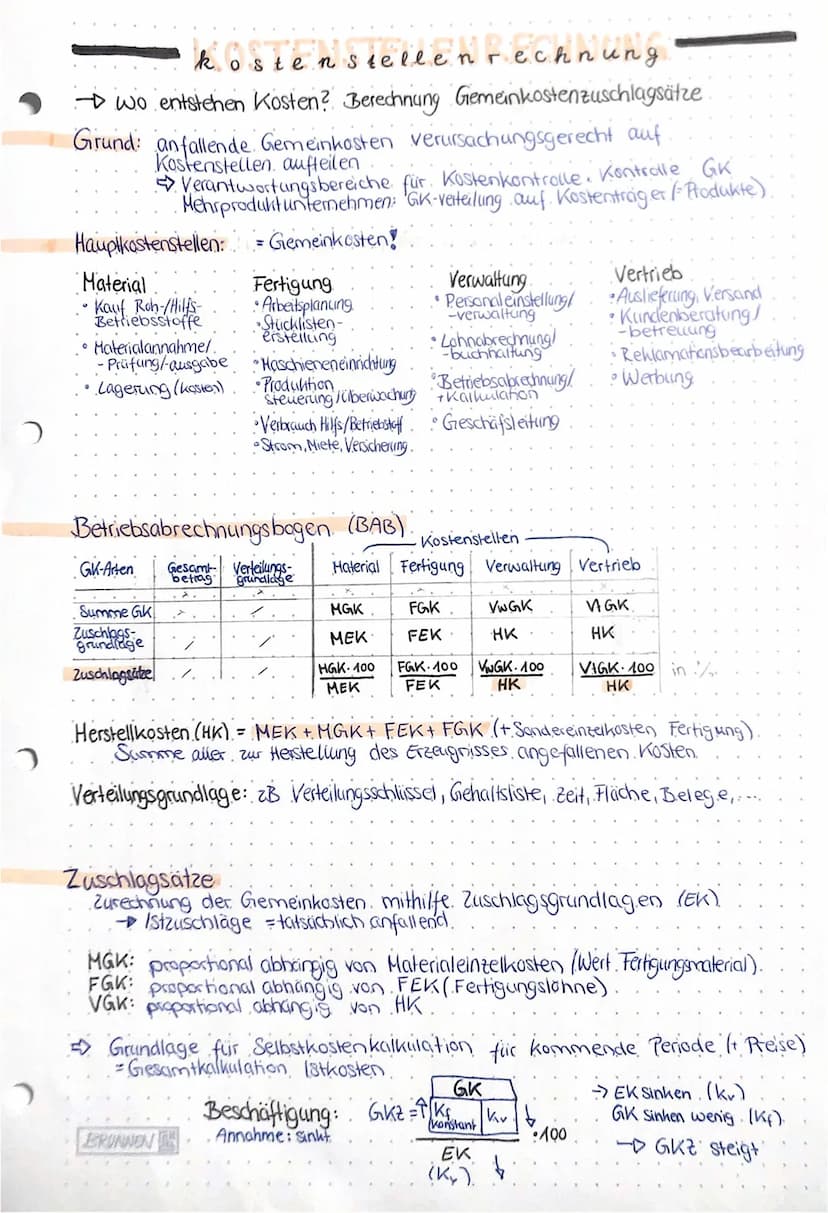 KOSTENSTELLENRECHNUNG
kostenstellenrechnung
→ Wo entstehen Kosten? Berechnung Gemeinkostenzuschlagsätze
Grund: anfallende Gemeinkosten verursachungsgerecht auf
Kostenstellen aufteilen
⇨ Verantwortungsbereiche für Kostenkontrolle, Kontrolle GK
Mehrproduktunternehmen: GK-Verteilung auf Kostenträger (=Produkte)
Hauptkostenstellen: = Gemeinkosten!
Material
• Kauf Roh-/Hilfs-
Betriebsstoffe
• Materialannahme/
-Prüfung/-ausgabe
• Lagerung (Kosten)
Fertigung
• Arbeitsplanung
• Stücklisten-
erstellung
• Maschieneneinrichtung
• Produktion
steuerung/Überwachung
• Verbrauch Hilfs/Betriebstoff
• Strom, Miete, Versicherung
Verwaltung
• Personaleinstellung/
-verwaltung
• Lohnabrechnung/
-buchhaltung
• Betriebsabrechnung/
+Kalkulation
• Geschäfsleitung
Vertrieb
• Auslieferung, Versand
• Kundenberatung/
-betreuung
• Reklamationsbearbeitung
• Werbung
Betriebsabrechnungsbogen (BAB)
Kostenstellen
GK-Arten Gesamt-betrag Verteilungs-grundlage Material Fertigung Verwaltung Vertrieb
Summe GK / MGK FGK VwGK VtGK
Zuschlags-grundlage / / MEK FEK HK HK
Zuschlagsätze / / MGK·100/MEK FGK·100/FEK VwGK·100/HK VtGK·100/HK in %
Herstellkosten (HK) = MEK + MGK + FEK + FGK (+ Sondereinzelkosten Fertigung)
Summe aller zur Herstellung des Erzeugnisses angefallenen Kosten
Verteilungsgrundlage: zB Verteilungsschlüssel, Gehaltsliste, Zeit, Fläche, Belege,...
Zuschlagsätze
Zurechnung der Gemeinkosten mithilfe Zuschlagsgrundlagen (EK)
→ Istzuschläge = tatsächlich anfallend
MGK: proportional abhängig von Materialeinzelkosten (Wert Fertigungsmaterial)
FGK: proportional abhängig von FEK (Fertigungslöhne)
VGK: proportional abhängig von HK
⇨ Grundlage für Selbstkostenkalkulation für kommende Periode (+ Preise)
= Gesamtkalkulation Istkosten
Beschäftigung:
Annahme: sinkt
GKZ = ↑
GK
Kf konstant Kv ↓
·100
EK
(Kv) ↓
→ EK sinken (kv)
GK sinken wenig (Kf)
→ GKZ steigt
BRUNNEN